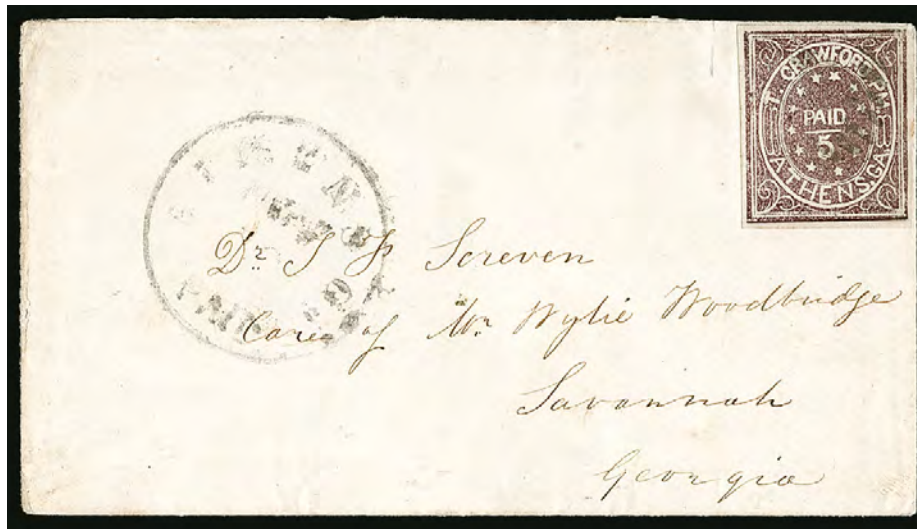 T. CRAWFORD, P.M.
PAID
5
ATHENS, GA
ATHENS GA.
PAID
Dr. J P Screven
Care of Mr Wylie Woodbridge
Savannah
Georgia